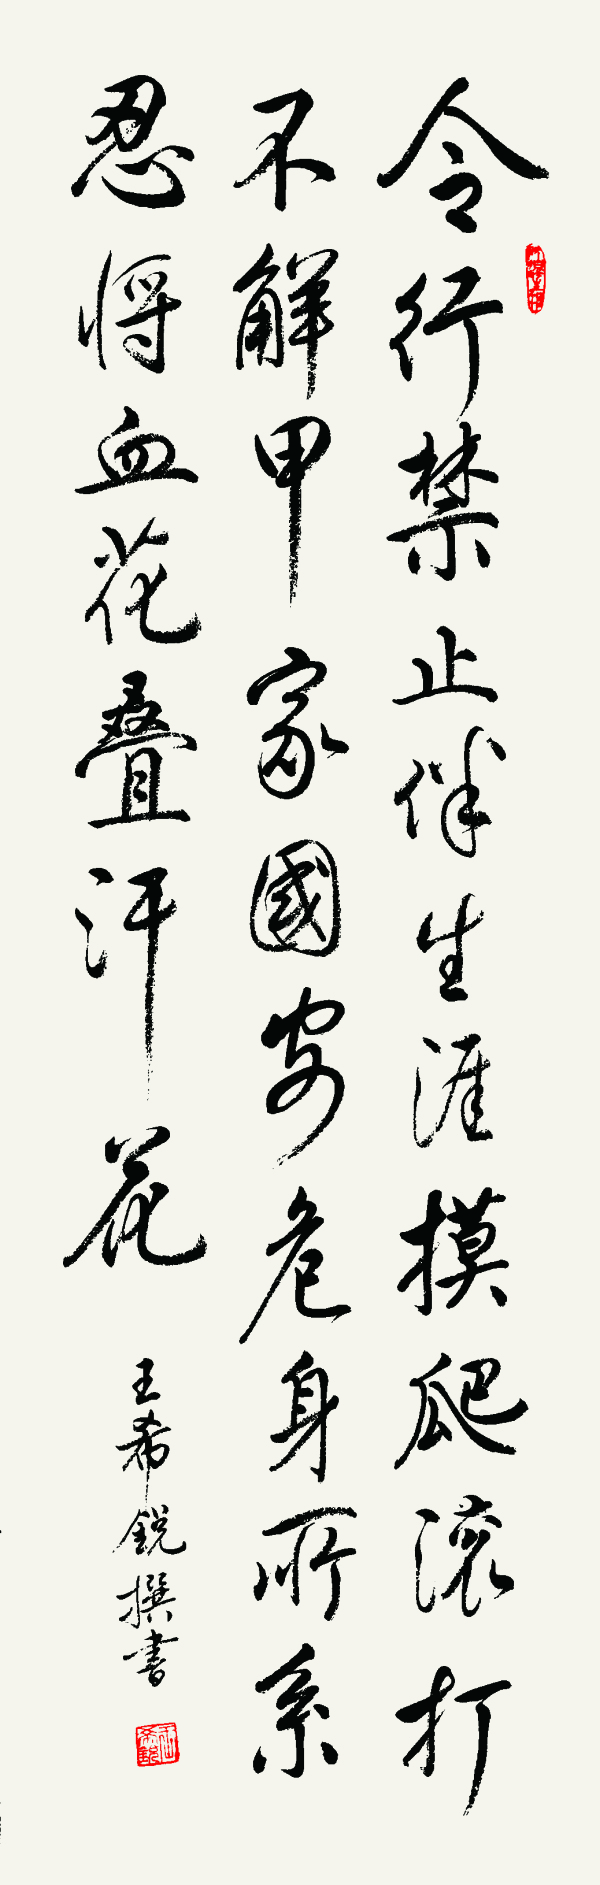 令行禁止伴生涯摸爬滚打
不解甲家國安危身所系
忍将血花叠汗花
王希銳撰書